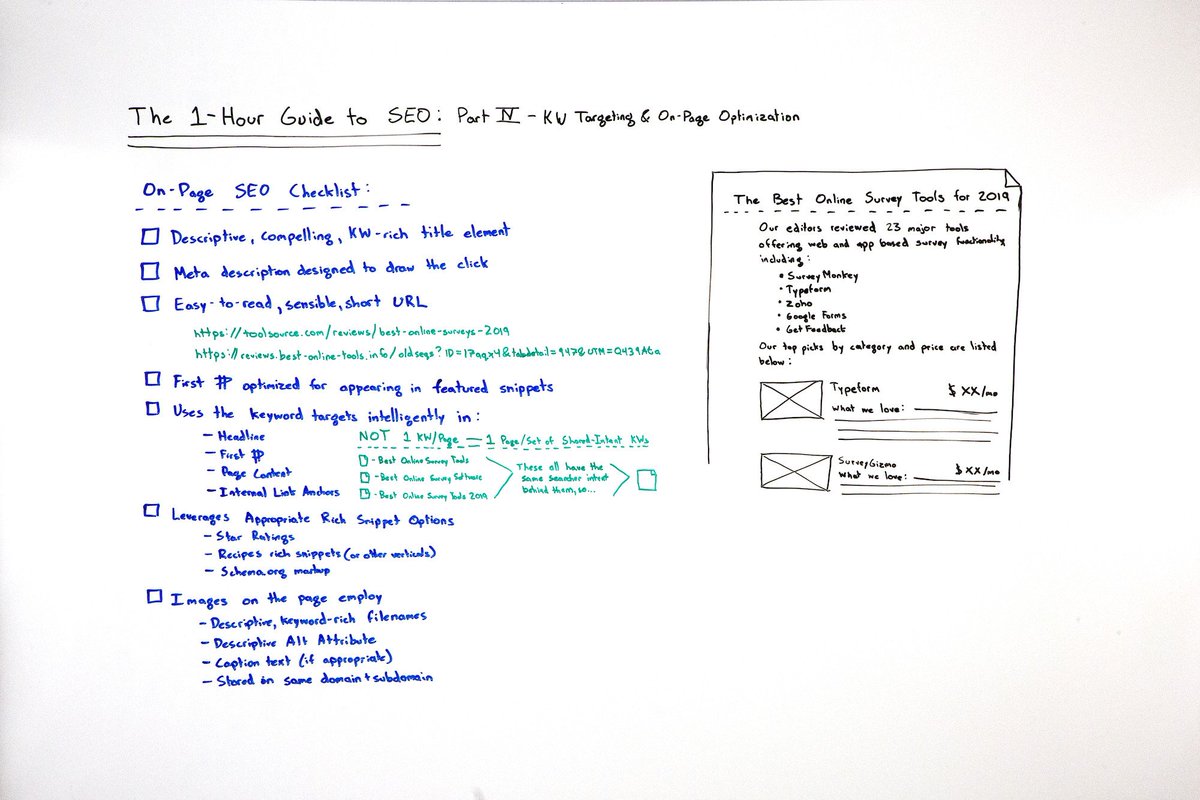 The 1-Hour Guide to SEO: Part IV - KW Targeting & On-Page Optimization
On-Page SEO Checklist:
Descriptive, compelling, KW-rich title element
Meta description designed to draw the click
Easy-to-read, sensible, short URL
https://toolsource.com/reviews/best-online-surveys-2019
https://reviews.best-online-tools.info/oldseqs?
First ¶ optimized for appearing in featured snippets
Uses the keyword targets intelligently in:
- Headline
- First ¶
- Page Content
- Internal Link Anchors
NOT 1 KW/Page = 1 Page/Set of Shared-Intent KWs
- Best Online Survey Tools
- Best Online Survey Software
- Best Online Survey Tools 2019
These all have the
same searcher intent
behind them, so...
Leverages Appropriate Rich Snippet Options
- Star Ratings
- Recipes rich snippets (or other verticals)
- Schema.org markup
Images on the page employ
- Descriptive, keyword-rich filenames
- Descriptive Alt Attribute
- Caption text (if appropriate)
- Stored on same domain + subdomain
The Best Online Survey Tools for 2019
Our editors reviewed 23 major tools
offering web and app based survey functionality
including:
• SurveyMonkey
• Typeform
• Zoho
• Google Forms
• GetFeedback
Our top picks by category and price are listed
below:
Typeform $ XX/mo
what we love:
SurveyGizmo $ XX/mo
what we love: